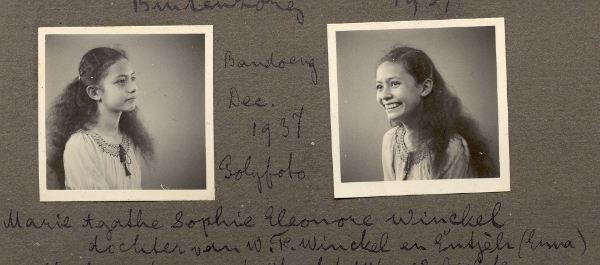 Buitenzorg 1937
Bandoeng
Dec.
1937
Polyfoto
Marie Agathe Sophie Eleonore Winckel
dochter van W.F. Winckel en Entjèh (Enna)